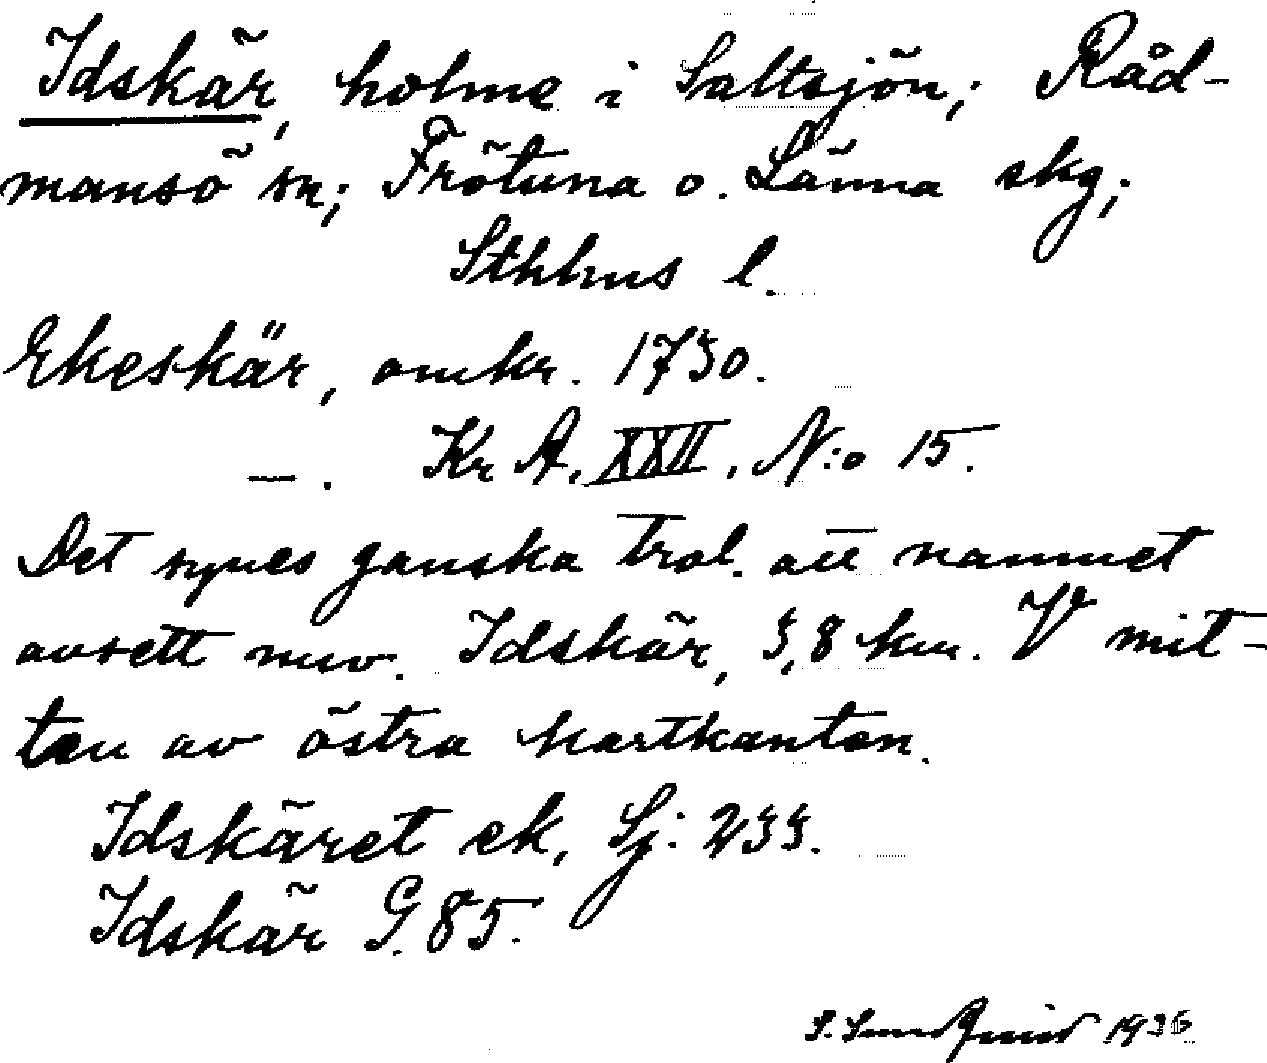 Idskär, holme i Saltsjön; Råd-
mansö sn; Frötuna o. Länna skg;
Sthlms l.
Ekeskär, omkr. 1730.
—. Kr A, XXII, N:o 15.
Det synes ganska trol. att namnet
avsett nuv. Idskär, 3,8 km. V mit-
ten av östra kartkanten.
Idskäret ek, Sj: 233.
Idskär G. 85.
S. Sundquist 1936